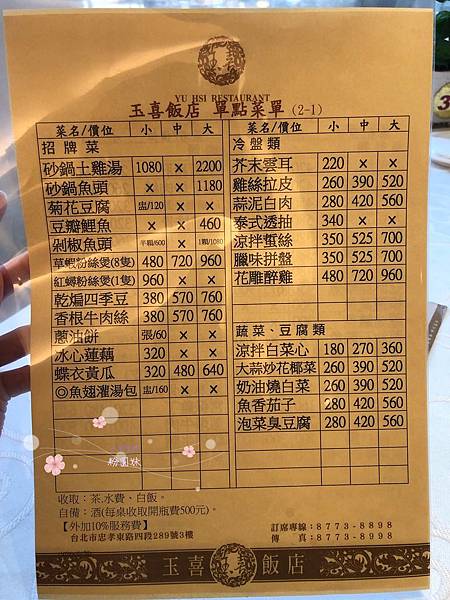 YU HSI RESTAURANT
玉喜飯店 單點菜單 (2-1)
菜名/價位 小 中 大
招牌菜
砂鍋土雞湯 1080 × 2200
砂鍋魚頭 × × 1180
菊花豆腐 盅/120 × ×
豆瓣鯉魚 × × 460
剁椒魚頭 半顆/600 × 1顆/1080
草蝦粉絲煲(8隻) 480 720 960
紅蟳粉絲煲(1隻) 960 × ×
乾煸四季豆 380 570 760
香根牛肉絲 380 570 760
蔥油餅 張/60 × ×
冰心蓮藕 320 × ×
蝶衣黃瓜 320 480 640
◎魚翅灌湯包 盅/160 × ×
菜名/價位 小 中 大
冷盤類
芥末雲耳 220 × ×
雞絲拉皮 260 390 520
蒜泥白肉 280 420 560
泰式透抽 340 × ×
涼拌蜇絲 350 525 700
臘味拼盤 350 525 700
花雕醉雞 480 720 960
蔬菜、豆腐類
涼拌白菜心 180 270 360
大蒜炒花椰菜 260 390 520
奶油燒白菜 260 390 520
魚香茄子 280 420 560
泡菜臭豆腐 280 420 560
粉圓妹
收取：茶.水費、白飯。
自備：酒(每桌收取開瓶費500元)。
【外加10%服務費】
台北市忠孝東路四段289號3樓
訂席專線：8773-8898
傳 真：8773-8998
玉喜 飯店